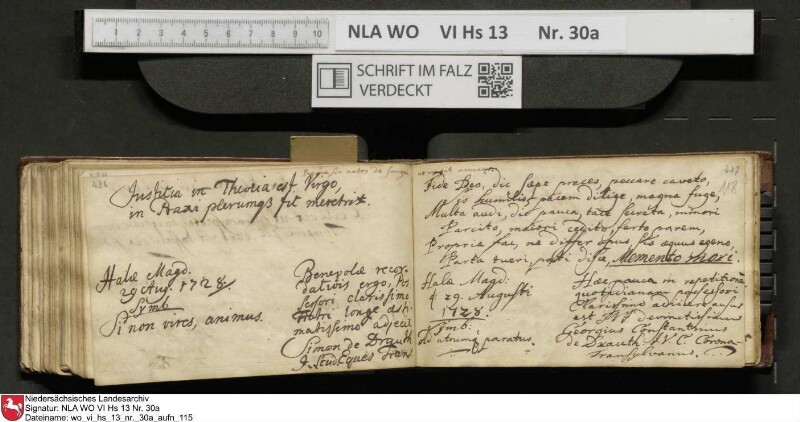 1 2 3 4 5 6 7 8 9 10
NLA WO VI Hs 13 Nr. 30a
SCHRIFT IM FALZ
VERDECKT
Justitia in Theoria est Virgo,
in Praxi plerumq3 fit meretrix.
Halæ Magd.
29 Aug. 1728.
Symb.
Si non vires, animus.
Benevolæ recor-
dationis ergo, Pos
sessori clarissimo
Fratri longe æsti-
matissimo adjecit
Simon de Drauth
J. Stud. Eques Trans.
118
Fide Deo, dic sæpe preces, peccare caveto,
Sis humilis, pacem dilige, magna fuge,
Multa audi, dic pauca, tace secreta, minori
Parcito, maiori cedito, ferto parem,
Propria fac, ne differ opus, sis æquus egeno,
Parta tueri, pati disce, Memento mori.
Halæ Magd:
d 29. Augusti
1728.
Symb:
Ad utrumq paratus.
Hæc pauca in repetitionē
quotidianam possessori
Clarissimo adiicere ausus
est
devinctissimus
Georgius Constantinus
de Drauth
Corona-
Transylvanus.
Niedersächsisches Landesarchiv
Signatur: NLA WO VI Hs 13 Nr. 30a
Dateiname: wo_vi_hs_13_nr._30a_aufn_115